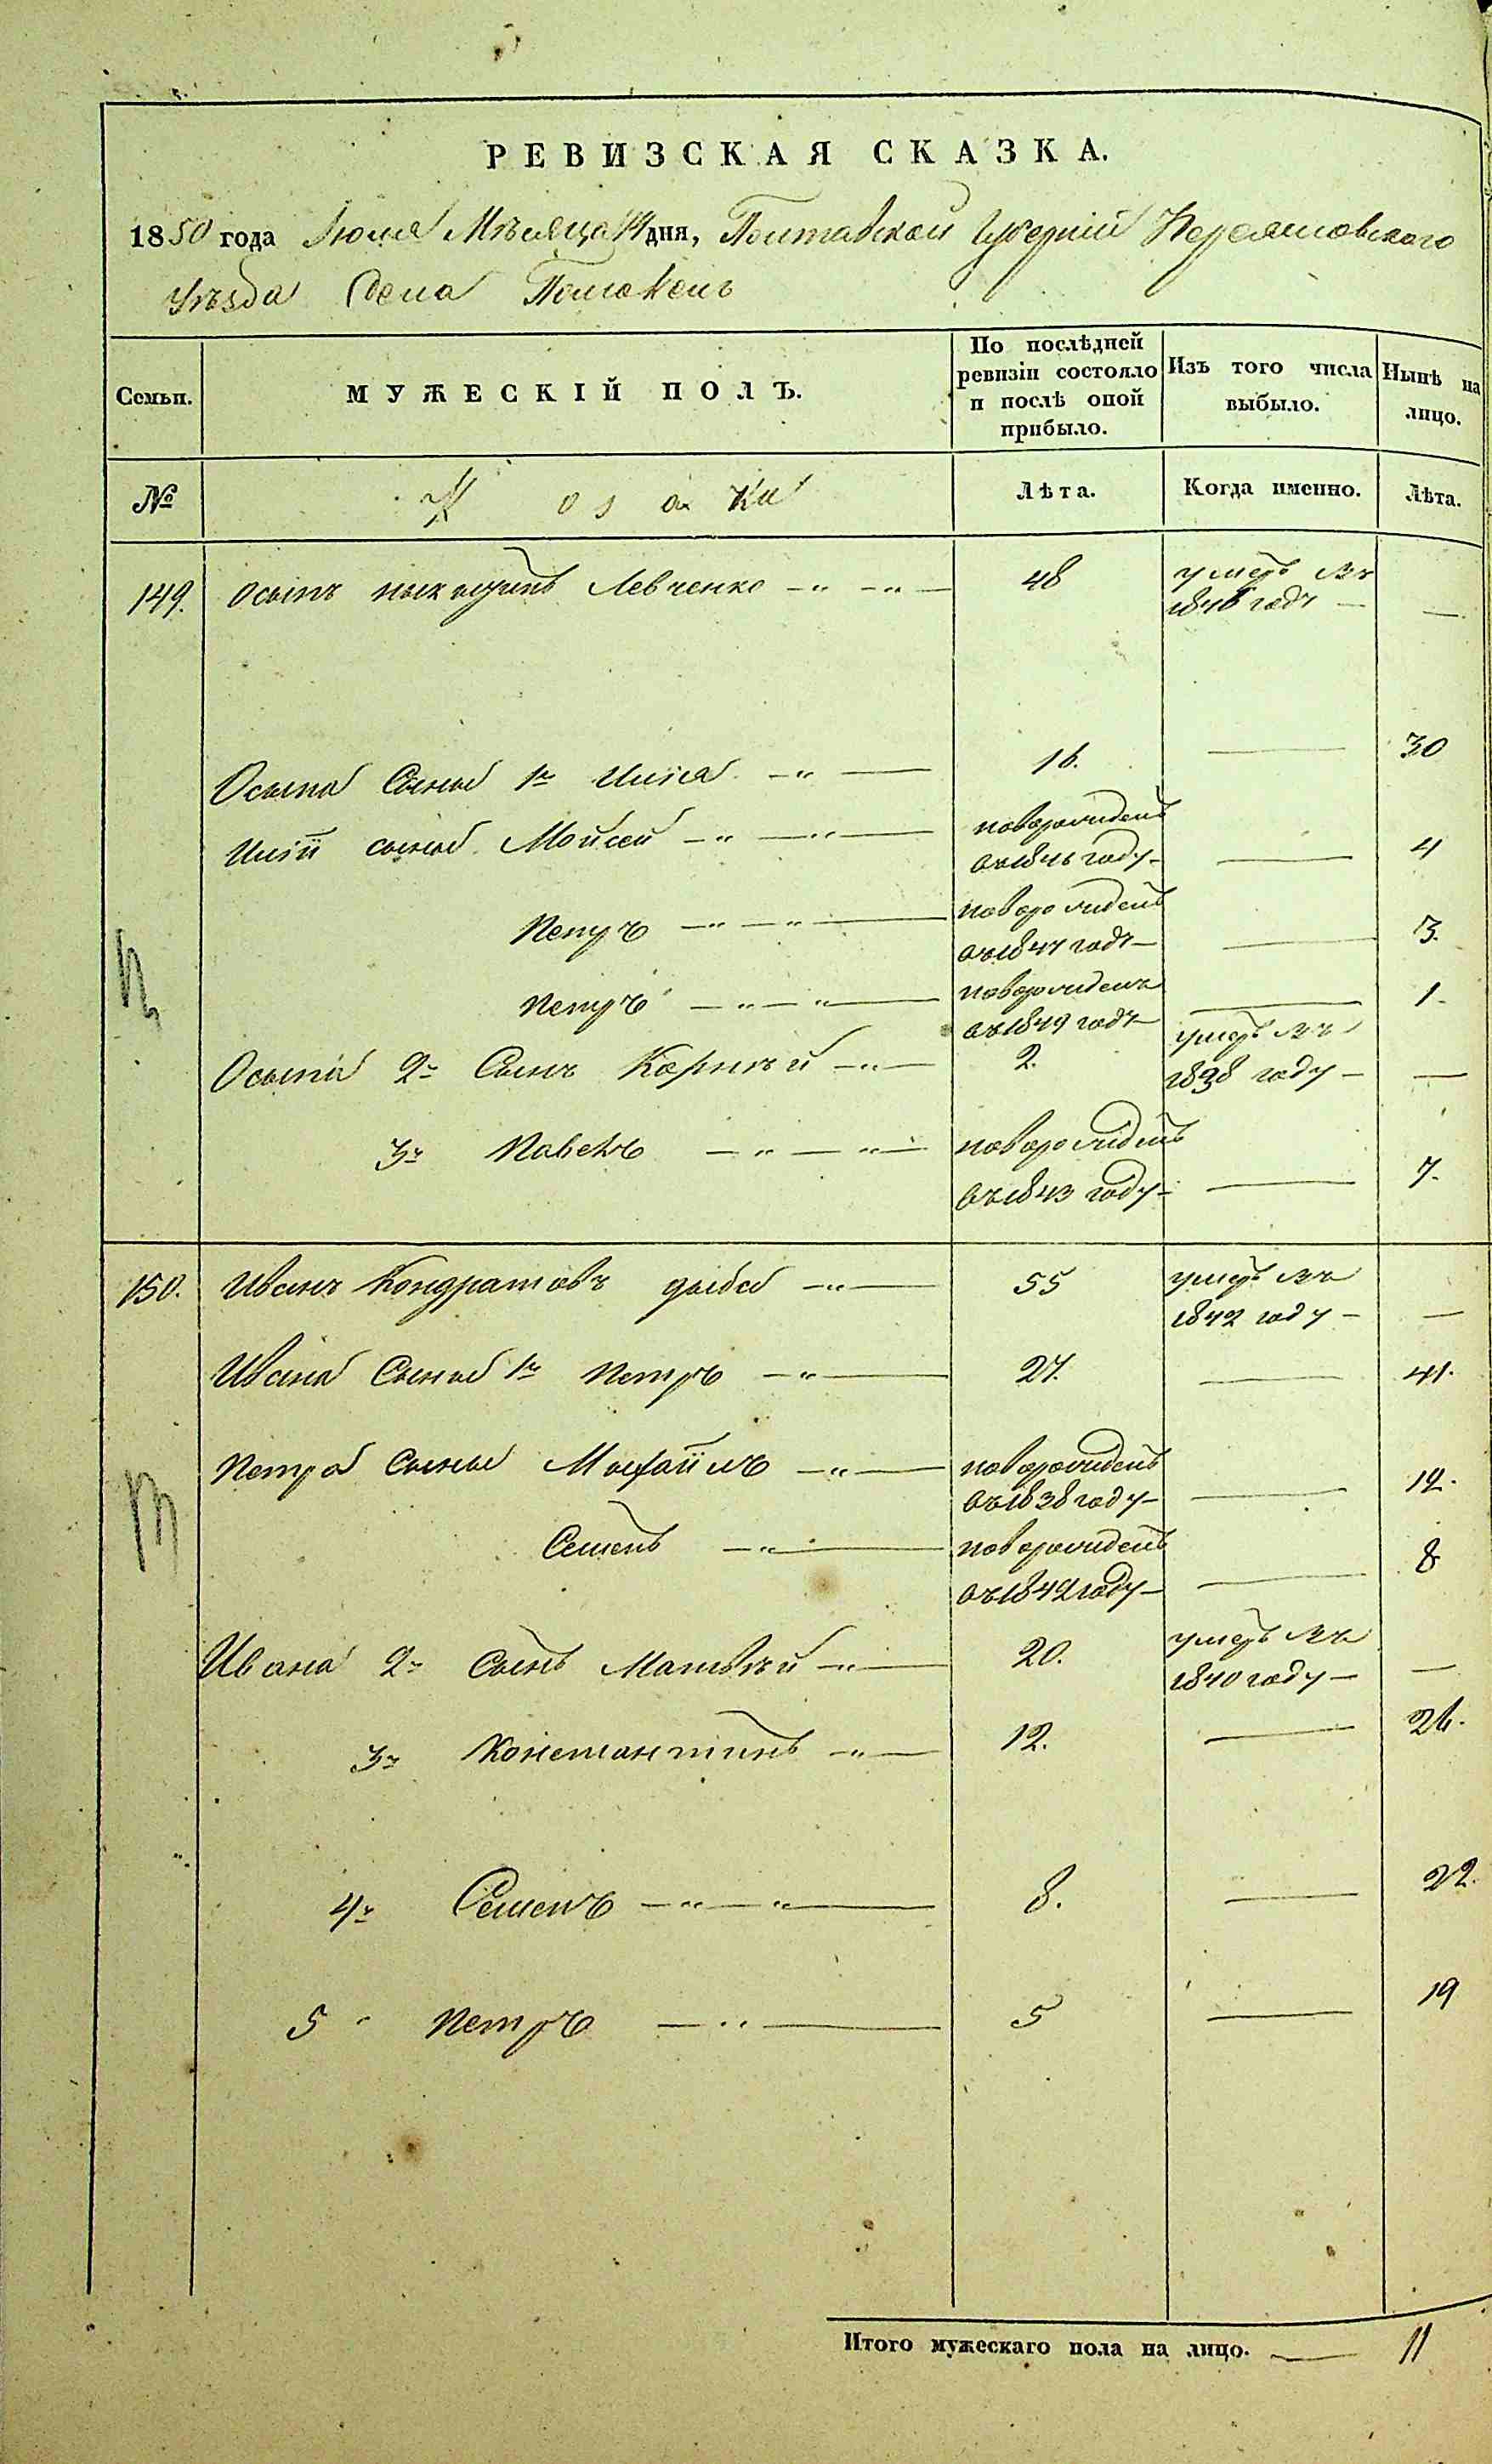 РЕВИЗСКАЯ СКАЗКА.
1850 года Июля Мѣсяца 14 дня, Полтавской Губерніи Переясловскаго
Уѣзда Села
Семьи. МУЖЕСКІЙ ПОЛЪ. По послѣдней ревизіи состояло и послѣ оной прибыло. Изъ того числа выбыло. Нынѣ на лицо.
№ Козаки Лѣта. Когда именно. Лѣта.
149. Осипъ Левченко 48 умеръ въ 1846 году —
Осипа Сыновья 1й Илія 16. — 30
Иліи сыновья Мойсей новорожденъ въ 1846 году — 4
Петръ новорожденъ въ 1847 году — 3.
Петръ новорожденъ въ 1849 году — 1.
Осипа 2й Сынъ Корнѣй 2. умеръ въ 1838 году —
3й Павелъ новорожденъ въ 1843 году — 7.
150. Иванъ Кондратовъ дыба 55 умеръ въ 1842 году —
Ивана Сыновья 1й Петръ 27. — 41.
Петра Сыновья Михаилъ новорожденъ въ 1838 году — 12.
Семенъ новорожденъ въ 1842 году — 8
Ивана 2й Сынъ Матвѣй 20. умеръ въ 1840 году —
3й Константинъ 12. — 26.
4й Семенъ 8. — 22.
5 Петръ 5 — 19
Итого мужескаго пола на лицо. — 11